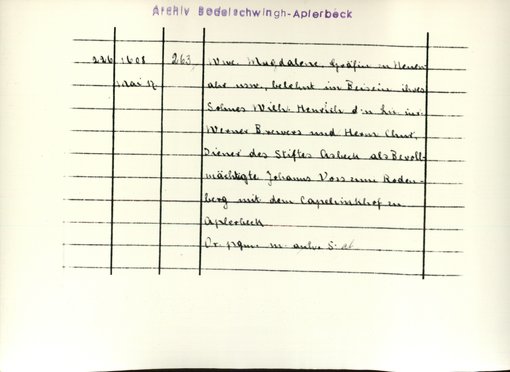 Archiv Bodelschwingh-Aplerbeck
226 1608 263 Wwe. Magdalene, Gräfin zu Neuen
Mai 17 ahr usw., belehnt im Beisein ihres
Sohnes Wilh. Henrich
Werner Brewers und Herm.
Diener des Stiftes Asbeck als Bevoll-
mächtigte Johanns Voss zum Roden-
berg mit dem Capelrinkhof zu
Aplerbeck
Or. pgm. m. anh. S. ab